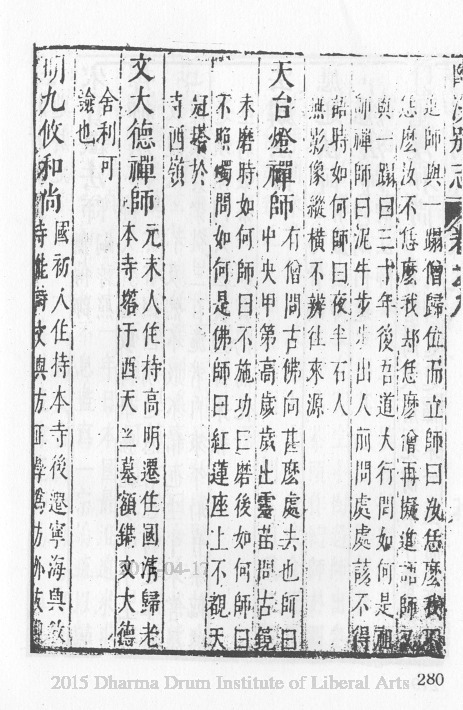 進師與一蹋僧歸位而立師曰汝恁麼我不
恁麼汝不恁麼我却恁麼僧再擬進語師又
與一蹋曰三十年後吾道大行問如何是
師禪師曰泥牛步步出人前問處處該不得
語時如何師曰夜半石人
無影像縱橫不辨往來源
天台燈禪師 有僧問古佛向甚麼處去也師曰
中央甲第高歲歲出靈苗問古鏡
未磨時如何師曰不施功曰磨後如何師曰
不照燭問如何是佛師曰紅蓮座上不覩天
冠塔於
寺西嶺
文大德禪師 元末人住持高明遷住國清歸老
本寺塔于西天竺墓額鐫文大德
舍利可
驗也
明九攸和尚 國初人住持本寺後遷寧海與教
2015-04-17
280
2015 Dharma Drum Institute of Liberal Arts